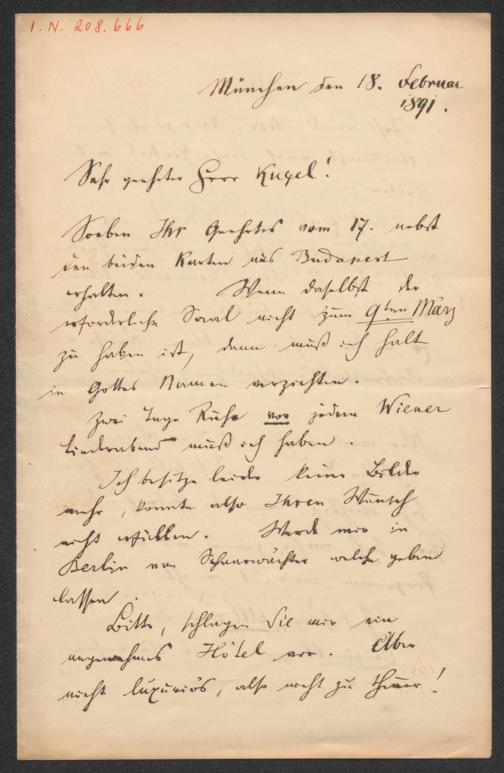 I. N. 208.666
München den 18. Februar
1891.
Sehr geehrter Herr Kugel!
Soeben Ihr Geehrtes vom 17. nebst
den beiden Karten aus Budapest
erhalten. Wenn daselbst der
erforderliche Saal nicht zum 9ten März
zu haben ist, dann muß ich halt
in Gottes Namen verzichten.
Zwei Tage Ruhe vor jedem Wiener
Liederabend muß ich haben.
Ich besitze leider keine Bilder
mehr, konnte also Ihren Wunsch
nicht erfüllen. Werde mir in
Berlin von Schaarwächter welche geben
lassen.
Bitte, schlagen Sie mir ein
angenehmes Hôtel vor. Aber
nicht luxuriös, also nicht zu theuer!